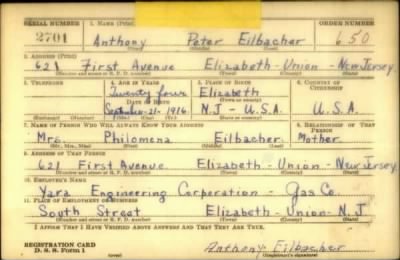 SERIAL NUMBER 1. NAME (Print) ORDER NUMBER
2701 Anthony Peter Eilbacher 650
2. ADDRESS (Print)
621 First Avenue Elizabeth-Union-New Jersey
(Number and street or R. F. D. number) (Town) (County) (State)
3. TELEPHONE 4. AGE IN YEARS 5. PLACE OF BIRTH 6. COUNTRY OF CITIZENSHIP
Twenty four Elizabeth
DATE OF BIRTH (Town or county)
September-21-1916 N.J - U.S.A. U.S.A.
(Mo.) (Day) (Yr.) (State or country)
7. NAME OF PERSON WHO WILL ALWAYS KNOW YOUR ADDRESS 8. RELATIONSHIP OF THAT PERSON
Mrs. Philomena Eilbacher Mother
(Mr., Mrs., Miss) (First) (Middle) (Last)
9. ADDRESS OF THAT PERSON
621 First Avenue Elizabeth-Union-New Jersey
(Number and street or R. F. D. number) (Town) (County) (State)
10. EMPLOYER'S NAME
Yara Engineering Corperation - Gas Co.
11. PLACE OF EMPLOYMENT OR BUSINESS
South Street Elizabeth-Union-N.J.
(Number and street or R. F. D. number) (Town) (County) (State)
I AFFIRM THAT I HAVE VERIFIED ABOVE ANSWERS AND THAT THEY ARE TRUE.
REGISTRATION CARD
D. S. S. Form 1 Anthony Eilbacher
(over) (Registrant's signature)